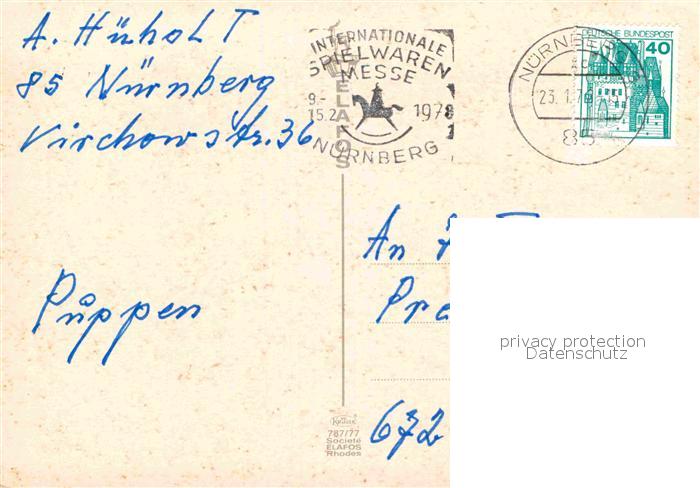 A. Hühol T
85 Nürnberg
Virchowstr. 36
Puppen
INTERNATIONALE
SPIELWAREN
MESSE
9.-
15.2
1978
NÜRNBERG
ELAFOS
NÜRNBERG
23. 1. 7
85
DEUTSCHE BUNDESPOST
40
An
Pra
672
Krüger
787/77
Société
ELAFOS
Rhodes
privacy protection
Datenschutz